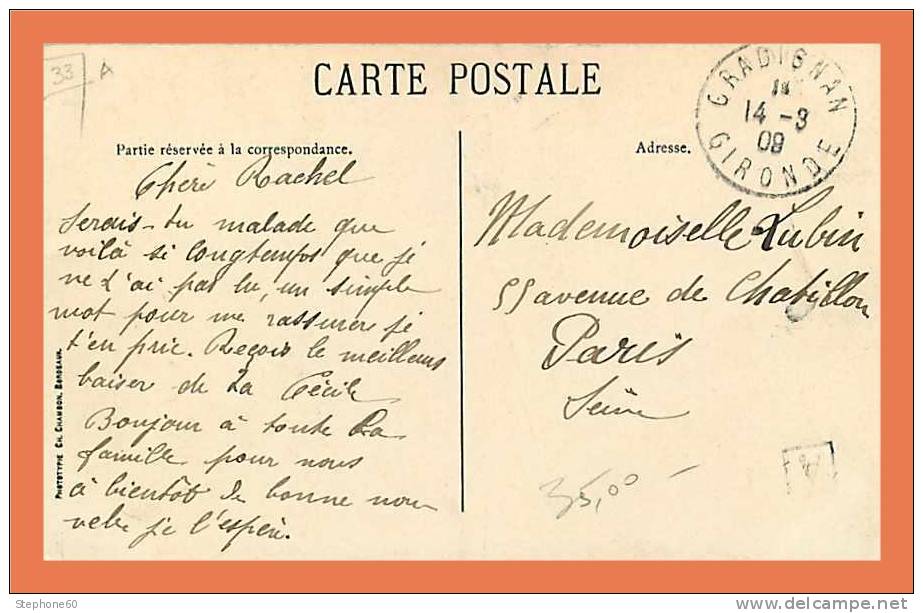 33 A
CARTE POSTALE
GRADIGNAN
14 -3
09
GIRONDE
Partie réservée à la correspondance.
Adresse.
Chère Rachel
Serais-tu malade que
voilà si longtemps que je
ne t'ai pas lu, un simple
mot pour me rassurer je
t'en prie. Reçois le meilleurs
baiser de ta Cécile
Bonjour à toute ta
famille pour nous
à bientôt de bonne nou
velle je l'espère.
Mademoiselle Lubin
55 avenue de Chatillon
Paris
Seine
35,00
PHOTOTYPIE CH. CHAMBON, BORDEAUX.
Stephone60
www.delcampe.net